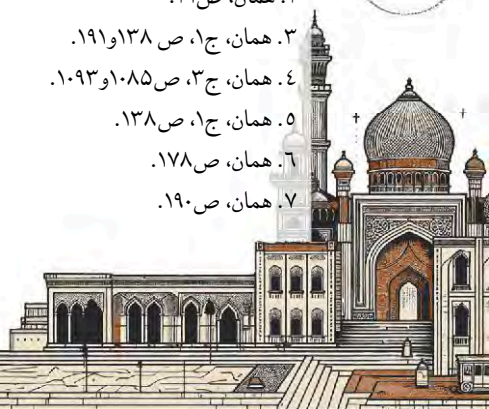 ۳. همان، ج۱، ص ۱۳۸و۱۹۱.
۴. همان، ج۳، ص۱۰۸۵و۱۰۹۳.
۵. همان، ج۱، ص۱۳۸.
۶. همان، ص۱۷۸.
۷. همان، ص۱۹۰.